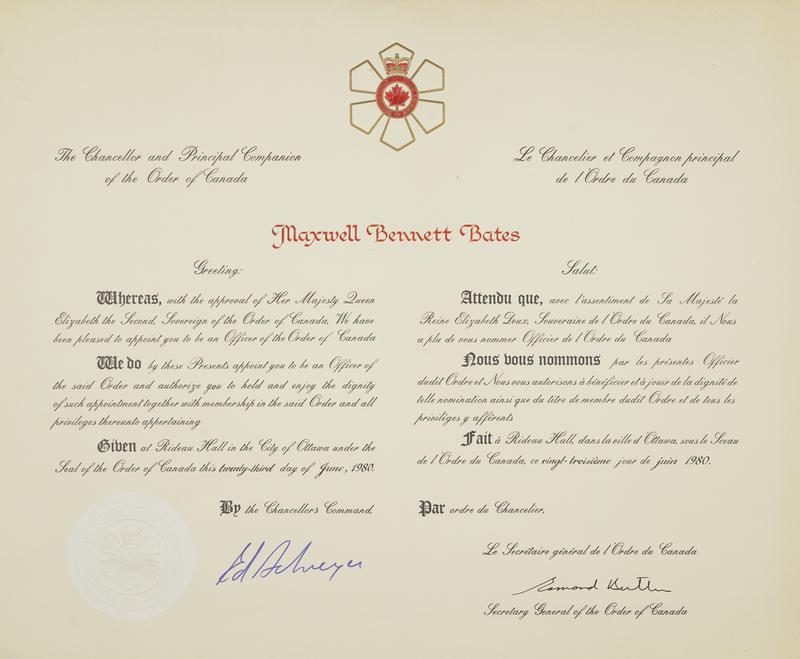 The Chancellor and Principal Companion
of the Order of Canada
Le Chancelier et Compagnon principal
de l'Ordre du Canada
Maxwell Bennett Bates
Greeting:
Whereas, with the approval of Her Majesty Queen
Elizabeth the Second, Sovereign of the Order of Canada, We have
been pleased to appoint you to be an Officer of the Order of Canada
We do by these Presents appoint you to be an Officer of
the said Order and authorize you to hold and enjoy the dignity
of such appointment together with membership in the said Order and all
privileges thereunto appertaining
Given at Rideau Hall in the City of Ottawa under the
Seal of the Order of Canada this twenty-third day of June, 1980.
By the Chancellor's Command,
Ed Schreyer
Salut:
Attendu que, avec l'assentiment de Sa Majesté la
Reine Elizabeth Deux, Souveraine de l'Ordre du Canada, il Nous
a plu de vous nommer Officier de l'Ordre du Canada
Nous vous nommons par les présentes Officier
dudit Ordre et Nous vous autorisons à bénéficier et à jouir de la dignité de
telle nomination ainsi que du titre de membre dudit Ordre et de tous les
privilèges y afférents
Fait à Rideau Hall, dans la ville d'Ottawa, sous le Sceau
de l'Ordre du Canada, ce vingt-troisième jour de juin 1980.
Par ordre du Chancelier,
Le Secrétaire général de l'Ordre du Canada
Esmond Butler
Secretary General of the Order of Canada